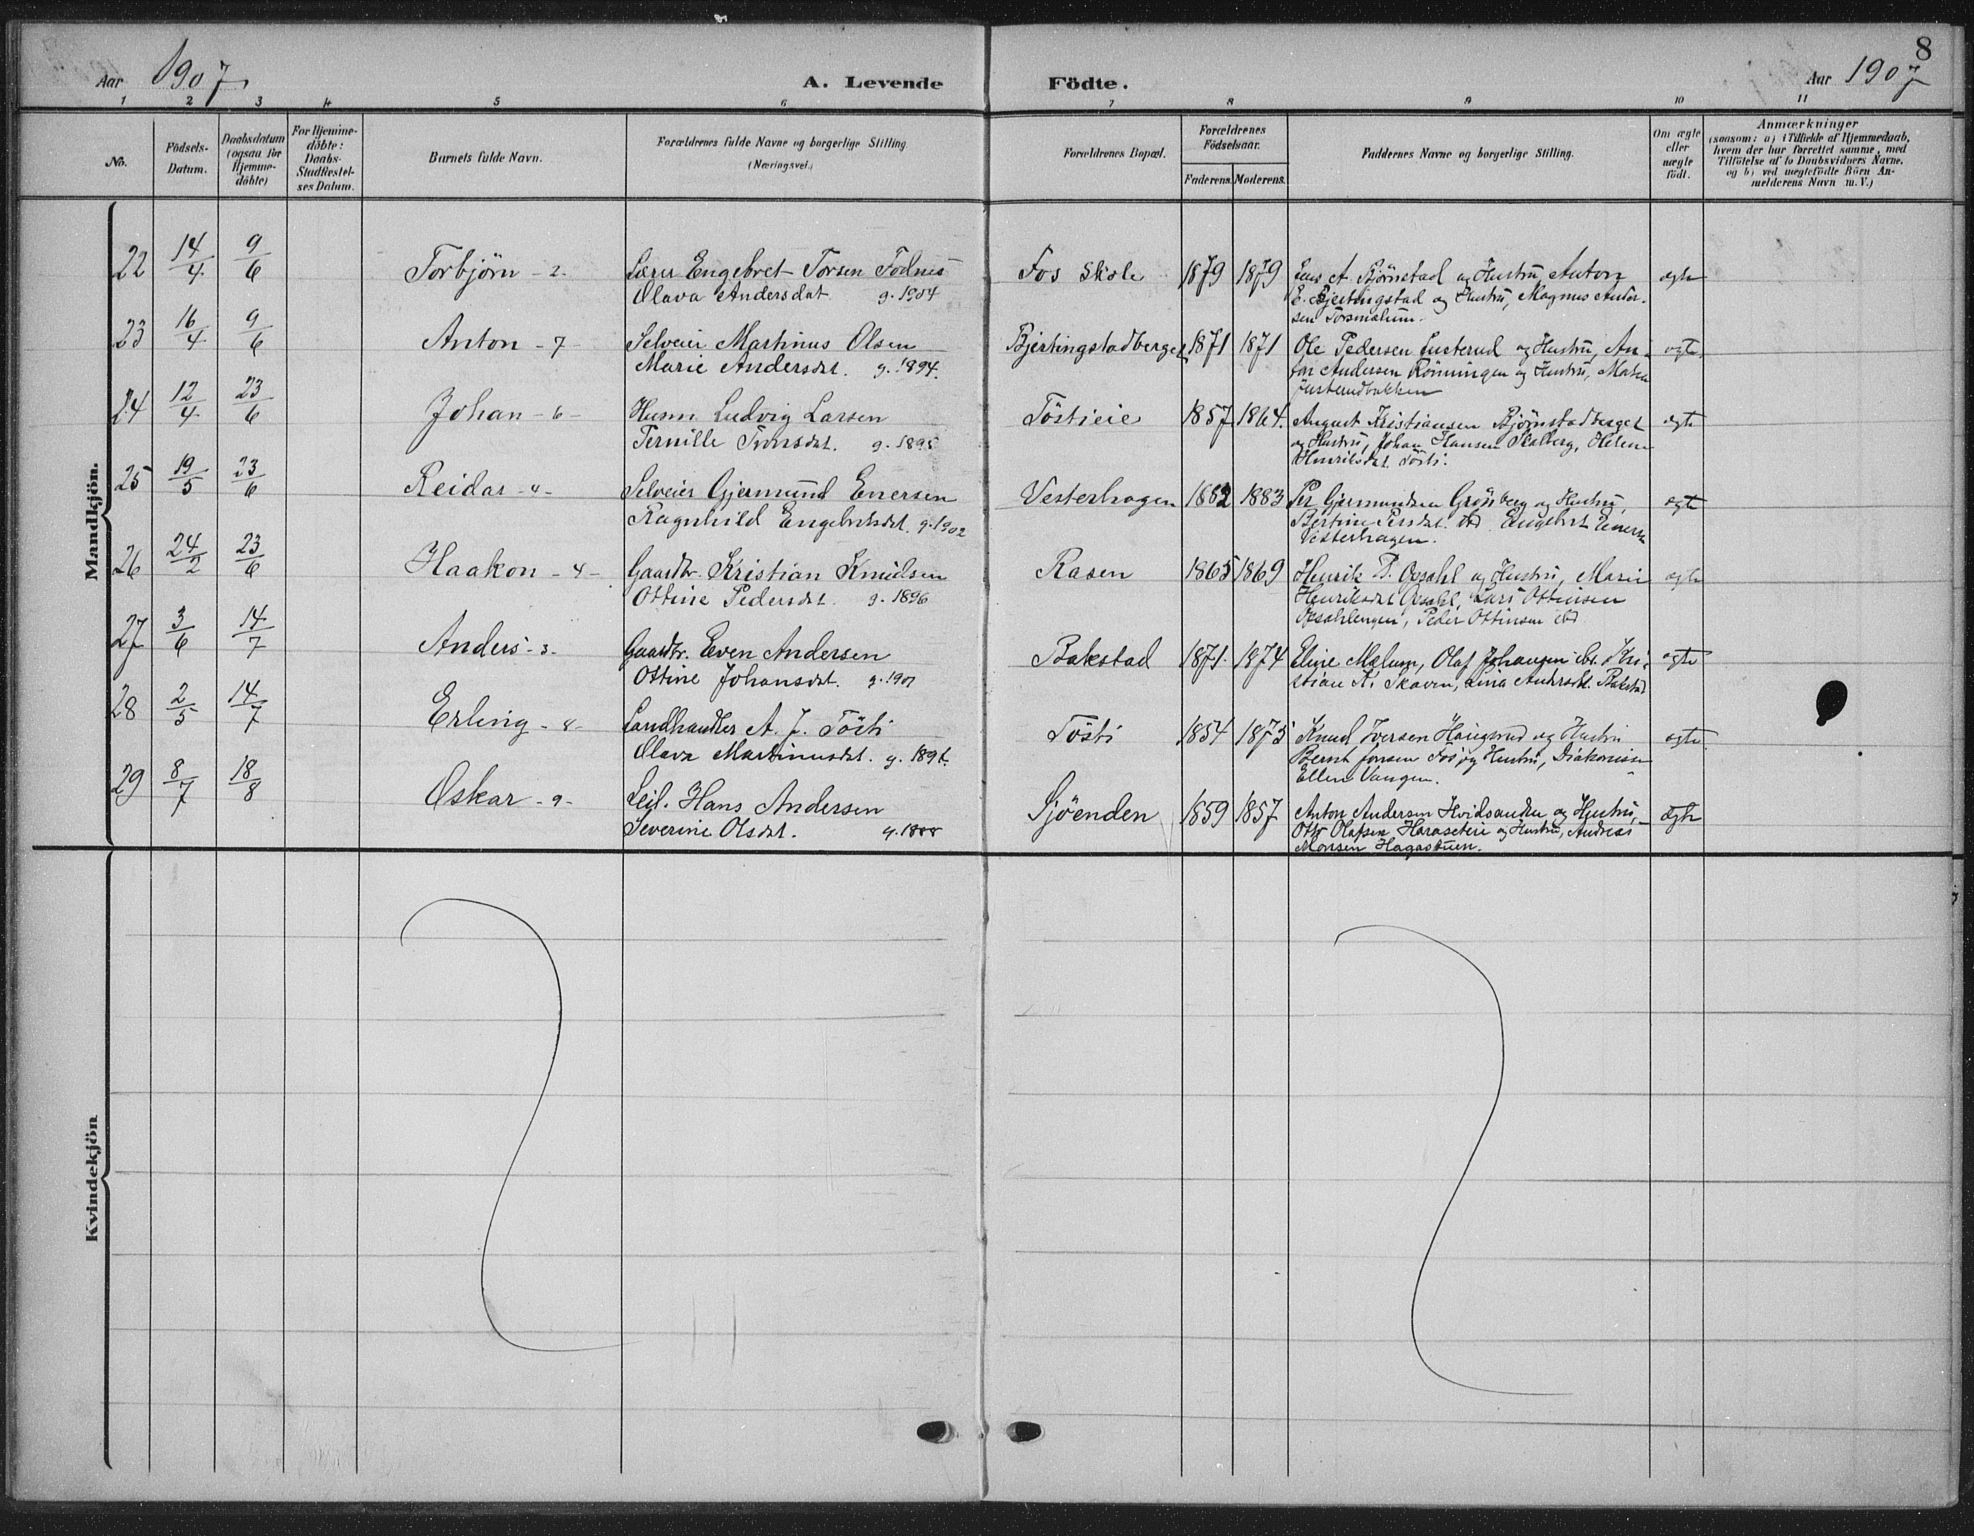 8
Aar 1907 A. Levende Födte. Aar 1907
1 2 3 4 5 6 7 8 9 10 11
No.
Födsels-
Datum.
Daabsdatum
(ogsaa for
Hjemme-
döbte)
For Hjemme-
döbte:
Daabs-
Stadfæstel-
ses Datum.
Barnets fulde Navn.
Forældrenes fulde Navne og borgerlige Stilling
(Næringsvei.)
Forældrenes Bopæl.
Forældrenes
Födselsaar.
Faderens. Moderens.
Faddernes Navne og borgerlige Stilling.
Om ægte
eller
uægte
født.
Anmærkninger
(saasom: a) i Tilfælde af Hjemmedaab,
hvem der har forrettet samme, med
Tilföielse af to Daabsvidners Navne.
og b) ved uægtefödte Börn An-
melderens Navn m. V.)
Mandkjön.
22 14/4 9/6 Torbjørn - 2 - Lærer Engebret Torsen Fodnes Fos Skole 1879 1879 A. Bjørnstad og Hustru, Anton ægte
Olava Andersdat. g. 1904 E. Bjertingstad og Hustru, Magnus Ander-
sen
23 16/4 9/6 Anton - 7 - Selveier Martinus Olsen Bjertingstadberget 1871 1871 Ole Pedersen Lusterud og Hustru, An- ægte
Marie Andersdat. g. 1894. Andersen Rönningen og Hustru,
24 12/4 23/6 Johan - 6 - Husm. Ludvig Larsen Töstieie 1857 1864. August Kristiansen Bjørnstadberget ægte
Pernille g. 1895 og Hustru, Johan Hansen Helene
Henriksdat. Tösti.
25 19/5 23/6 Reidar - 4 - Selveier Gjermund Enersen Vesterhagen 1882 1883 Per Gjermundsen Grønberg og Hustru, ægte
Ragnhild Engebretsdat. g. 1902 Bertine Persdat. ibd. Engebret Enersen
Vesterhagen.
26 24/2 23/6 Haakon - 4 - Gaardbr. Kristian Knudsen Rasen 1865 1869 Henrik P. Opsahl og Hustru, Marie ægte
Ottine Pedersdat. g. 1896 Henriksdat Opsahl, Lars Ottinsen
Opsahlengen, Peder Ottinsen ibd
27 3/6 14/7 Anders - 3 - Gaardbr. Even Andersen Bakstad 1871. 1874 Eline Mælum, Olaf Johansen ibd. Kri- ægte
Ottine Johansdat. g. 1901 stian K. Skaven, Lina Andersdat. Bakstad
28 2/5 14/7 Erling - 4 - Landhandler A. J. Tösti Tösti 1854 1875 Knud Iversen Haugsrud og Hustru ægte
Olava Martinusdat. g. 1896. Bernt Jonsen Fos og Hustru, Diakonisse
Ellen Vangen.
29 8/7 18/8 Oskar - 9 - Leil. Hans Andersen Sjöenden 1859 1857 Anton Andersen Hvidsanden og Hustru, ægte
Severine Olsdat. g. 1888 Otto Olafsen og Hustru, Andreas
Monsen Hagastuen.
Kvindekjön